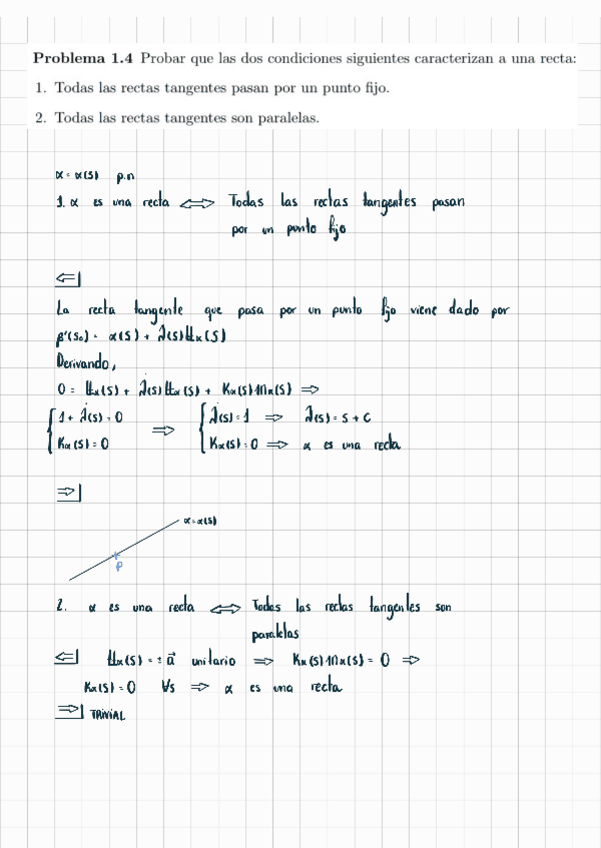 Problema 1.4 Probar que las dos condiciones siguientes caracterizan a una recta:
1. Todas las rectas tangentes pasan por un punto fijo.
2. Todas las rectas tangentes son paralelas.
α = α(s) p.n
1. α es una recta ⟺ Todas las rectas tangentes pasan
por un punto fijo
⇐|
La recta tangente que pasa por un punto fijo viene dado por
β'(s₀) = α(s) + λ(s)𝕥α(s)
Derivando,
0 = 𝕥α(s) + λ(s)𝕥α(s) + Kα(s)𝕟α(s) ⇒
{ 1 + λ(s) = 0 ⇒ { λ(s) = 1 ⇒ λ(s) = s + c
Kα(s) = 0 Kα(s) = 0 ⇒ α es una recta
⇒|
α = α(s)
P
2. α es una recta ⟺ Todas las rectas tangentes son
paralelas
⇐| 𝕥α(s) = ± a⃗ unitario ⇒ Kα(s)𝕟α(s) = 0 ⇒
Kα(s) = 0 ∀s ⇒ α es una recta
⇒| TRIVIAL